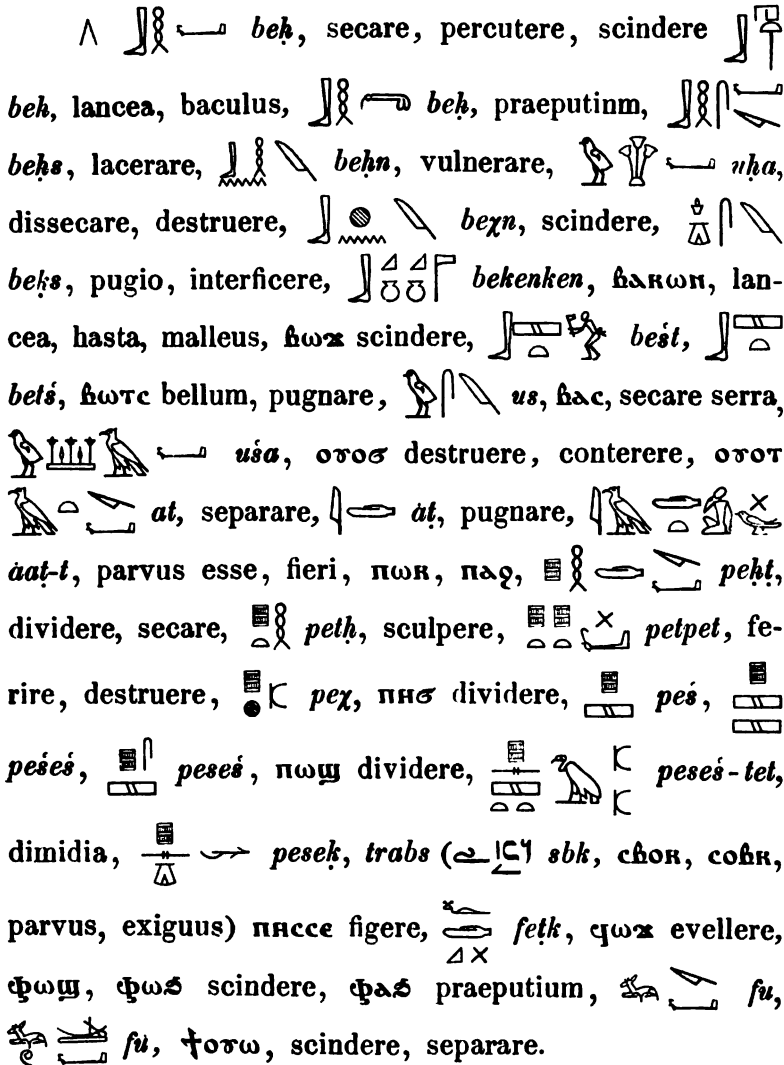 Λ beḥ, secare, percutere, scindere
beh, lancea, baculus, beḥ, praeputinm,
beḥs, lacerare, beḥn, vulnerare, uḥa,
dissecare, destruere, beχn, scindere,
beḳs, pugio, interficere, bekenken, ⲃⲁⲕⲱⲛ, lan-
cea, hasta, malleus, ⲃⲱϫ scindere, beśt,
betś, ⲃⲱⲧⲥ bellum, pugnare, us, ⲃⲁⲥ, secare serra,
uśa, ⲟⲩⲟϭ destruere, conterere, ⲟⲩⲟⲧ
at, separare, ȧṭ, pugnare,
ȧaṭ-t, parvus esse, fieri, ⲡⲱⲕ, ⲡⲁϩ, peḥṭ,
dividere, secare, petḥ, sculpere, petpet, fe-
rire, destruere, peχ, ⲡⲏϭ dividere, peś,
peśeś, peseś, ⲡⲱϣ dividere, peseś-tet,
dimidia, peseḳ, trabs ( sbk, ⲥⲃⲟⲕ, ⲥⲟⲃⲕ,
parvus, exiguus) ⲡⲏⲥⲥⲉ figere, feṭk, ϥⲱϫ evellere,
ⲫⲱϣ, ⲫⲱϧ scindere, ⲫⲁϧ praeputium, fu,
fu̇, ϯⲟⲩⲱ, scindere, separare.